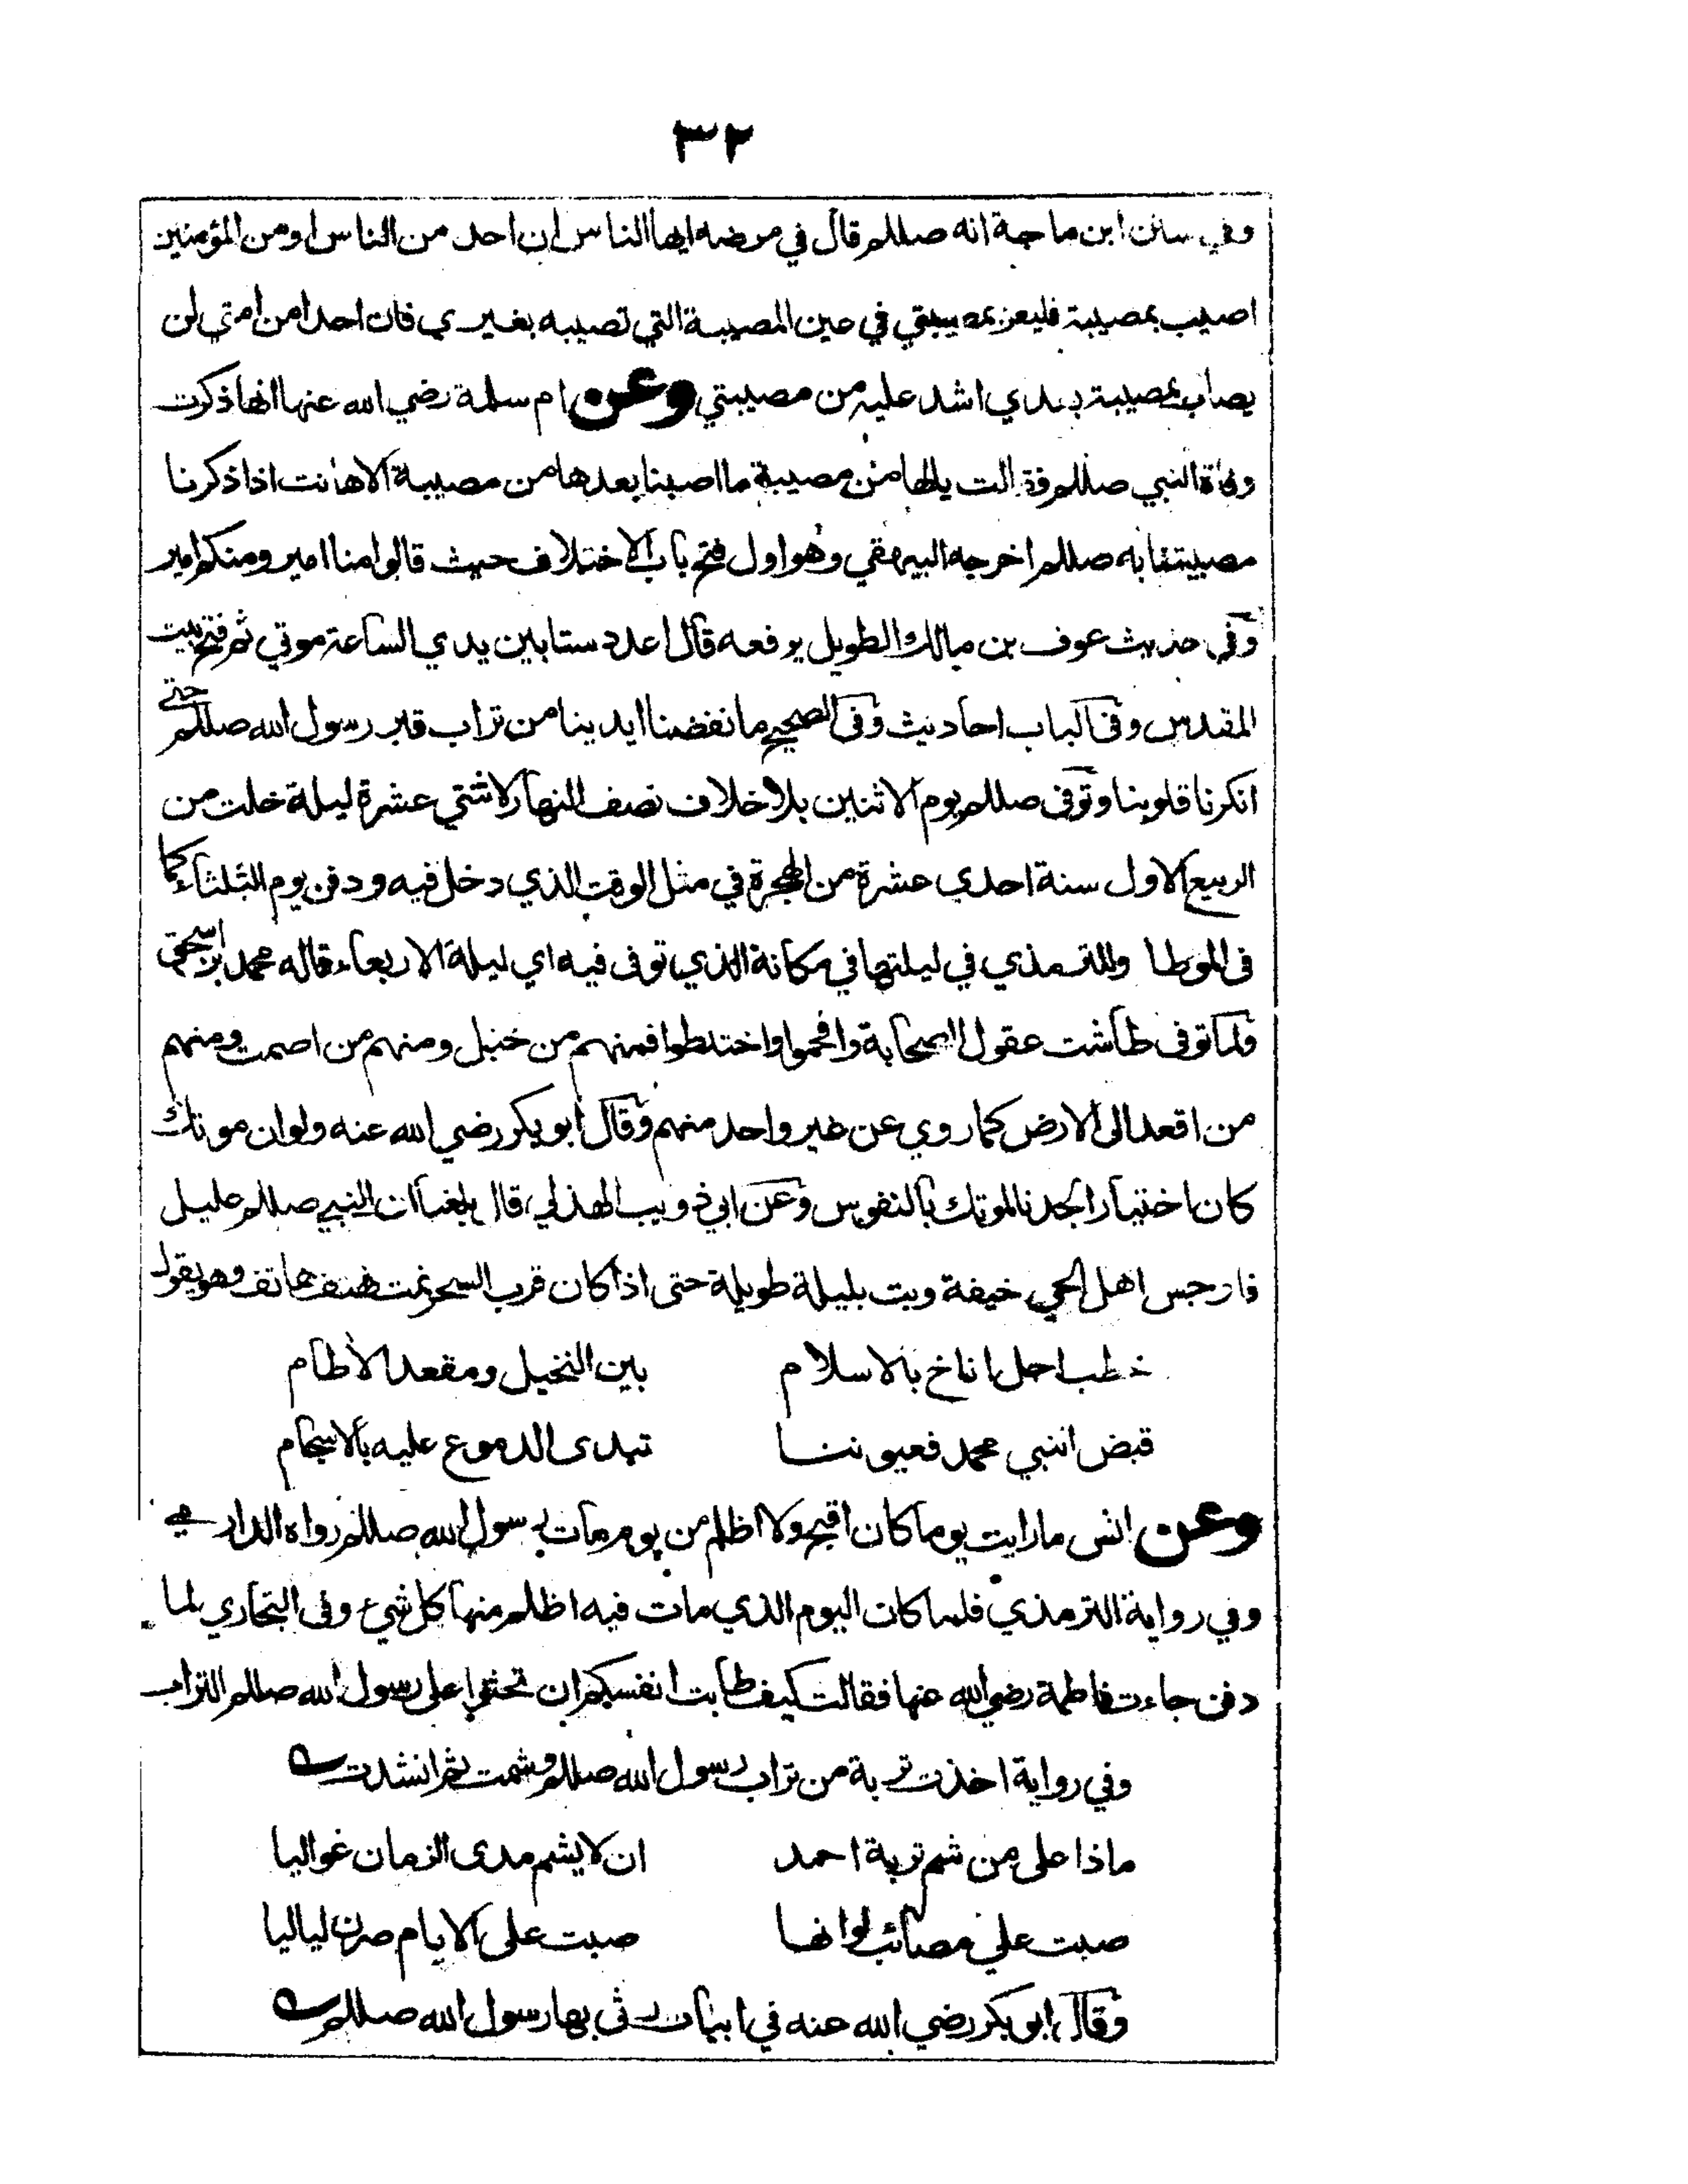 ٣٢
وفي سنن ابن ماجة انه صللم قال في مرضه ايها الناس ان احد من الناس او من المؤمنين
اصيب بمصيبة فليعز بمصيبتي في حين المصيبة التي تصيبه بغيري فان احدا من امتي لن
يصاب بمصيبة بعدي اشد عليه من مصيبتي وعن ام سلمة رضي الله عنها انها ذكرت
وفاة النبي صللم فقالت يالها من مصيبة ما اصبنا بعدها من مصيبة الا هانت اذا ذكرنا
مصيبتنا به صللم اخرجه البيهقي وهو اول فتح باب الاختلاف حيث قالوا منا امير ومنكم امير
وفي حديث عوف بن مالك الطويل يرفعه قال اعدد ستا بين يدي الساعة موتي ثم فتح بيت
المقدس وفي الباب احاديث وفي الصحيح ما نفضنا ايدينا من تراب قبر رسول الله صللم حتى
انكرنا قلوبنا وتوفى صللم يوم الاثنين بلا خلاف نصف النهار لاثنتي عشرة ليلة خلت من
الربيع الاول سنة احدي عشرة من الهجرة في مثل الوقت الذي دخل فيه ودفن يوم الثلثاء كما
في الموطا وللترمذي في ليلتها في مكانة الذي توفى فيه اي ليلة الاربعاء قاله محمد بن اسحق
ولما توفى طاشت عقول الصحابة وافحموا واختلطوا فمنهم من خبل ومنهم من اصمت ومنهم
من اقعد الى الارض كما روي عن غير واحد منهم وقال ابو بكر رضي الله عنه ولو ان موتك
كان اختيارا لجدنا لموتك بالنفوس وعن ابي ذويب الهذلي قال بلغنا ان النبي صللم عليل
فاوجس اهل الحي خيفة وبت بليلة طويلة حتى اذا كان قرب السحر نمت فهتف هاتف وهو يقول
خطب اجل اناخ بالاسلام بين النخيل ومقعد الاطام
قبض النبي محمد فعيوننا تبدى الدموع عليه بالاسجام
وعن انس ما رايت يوما كان اقبح ولا اظلم من يوم مات رسول الله صللم رواه الدارمي
وفي رواية الترمذي فلما كان اليوم الذي مات فيه اظلم منها كل شيء وفي البخاري لما
دفن جاءت فاطمة رضي الله عنها فقالت كيف طابت انفسكم ان تحثوا على رسول الله صللم التراب
وفي رواية اخذت تربة من تراب رسول الله صللم وشمت ثم انشدت
ماذا على من شم تربة احمد ان لا يشم مدى الزمان غواليا
صبت علي مصائب لو انها صبت على الايام صرن لياليا
وقال ابو بكر رضي الله عنه في ابيات رثى بها رسول الله صللم